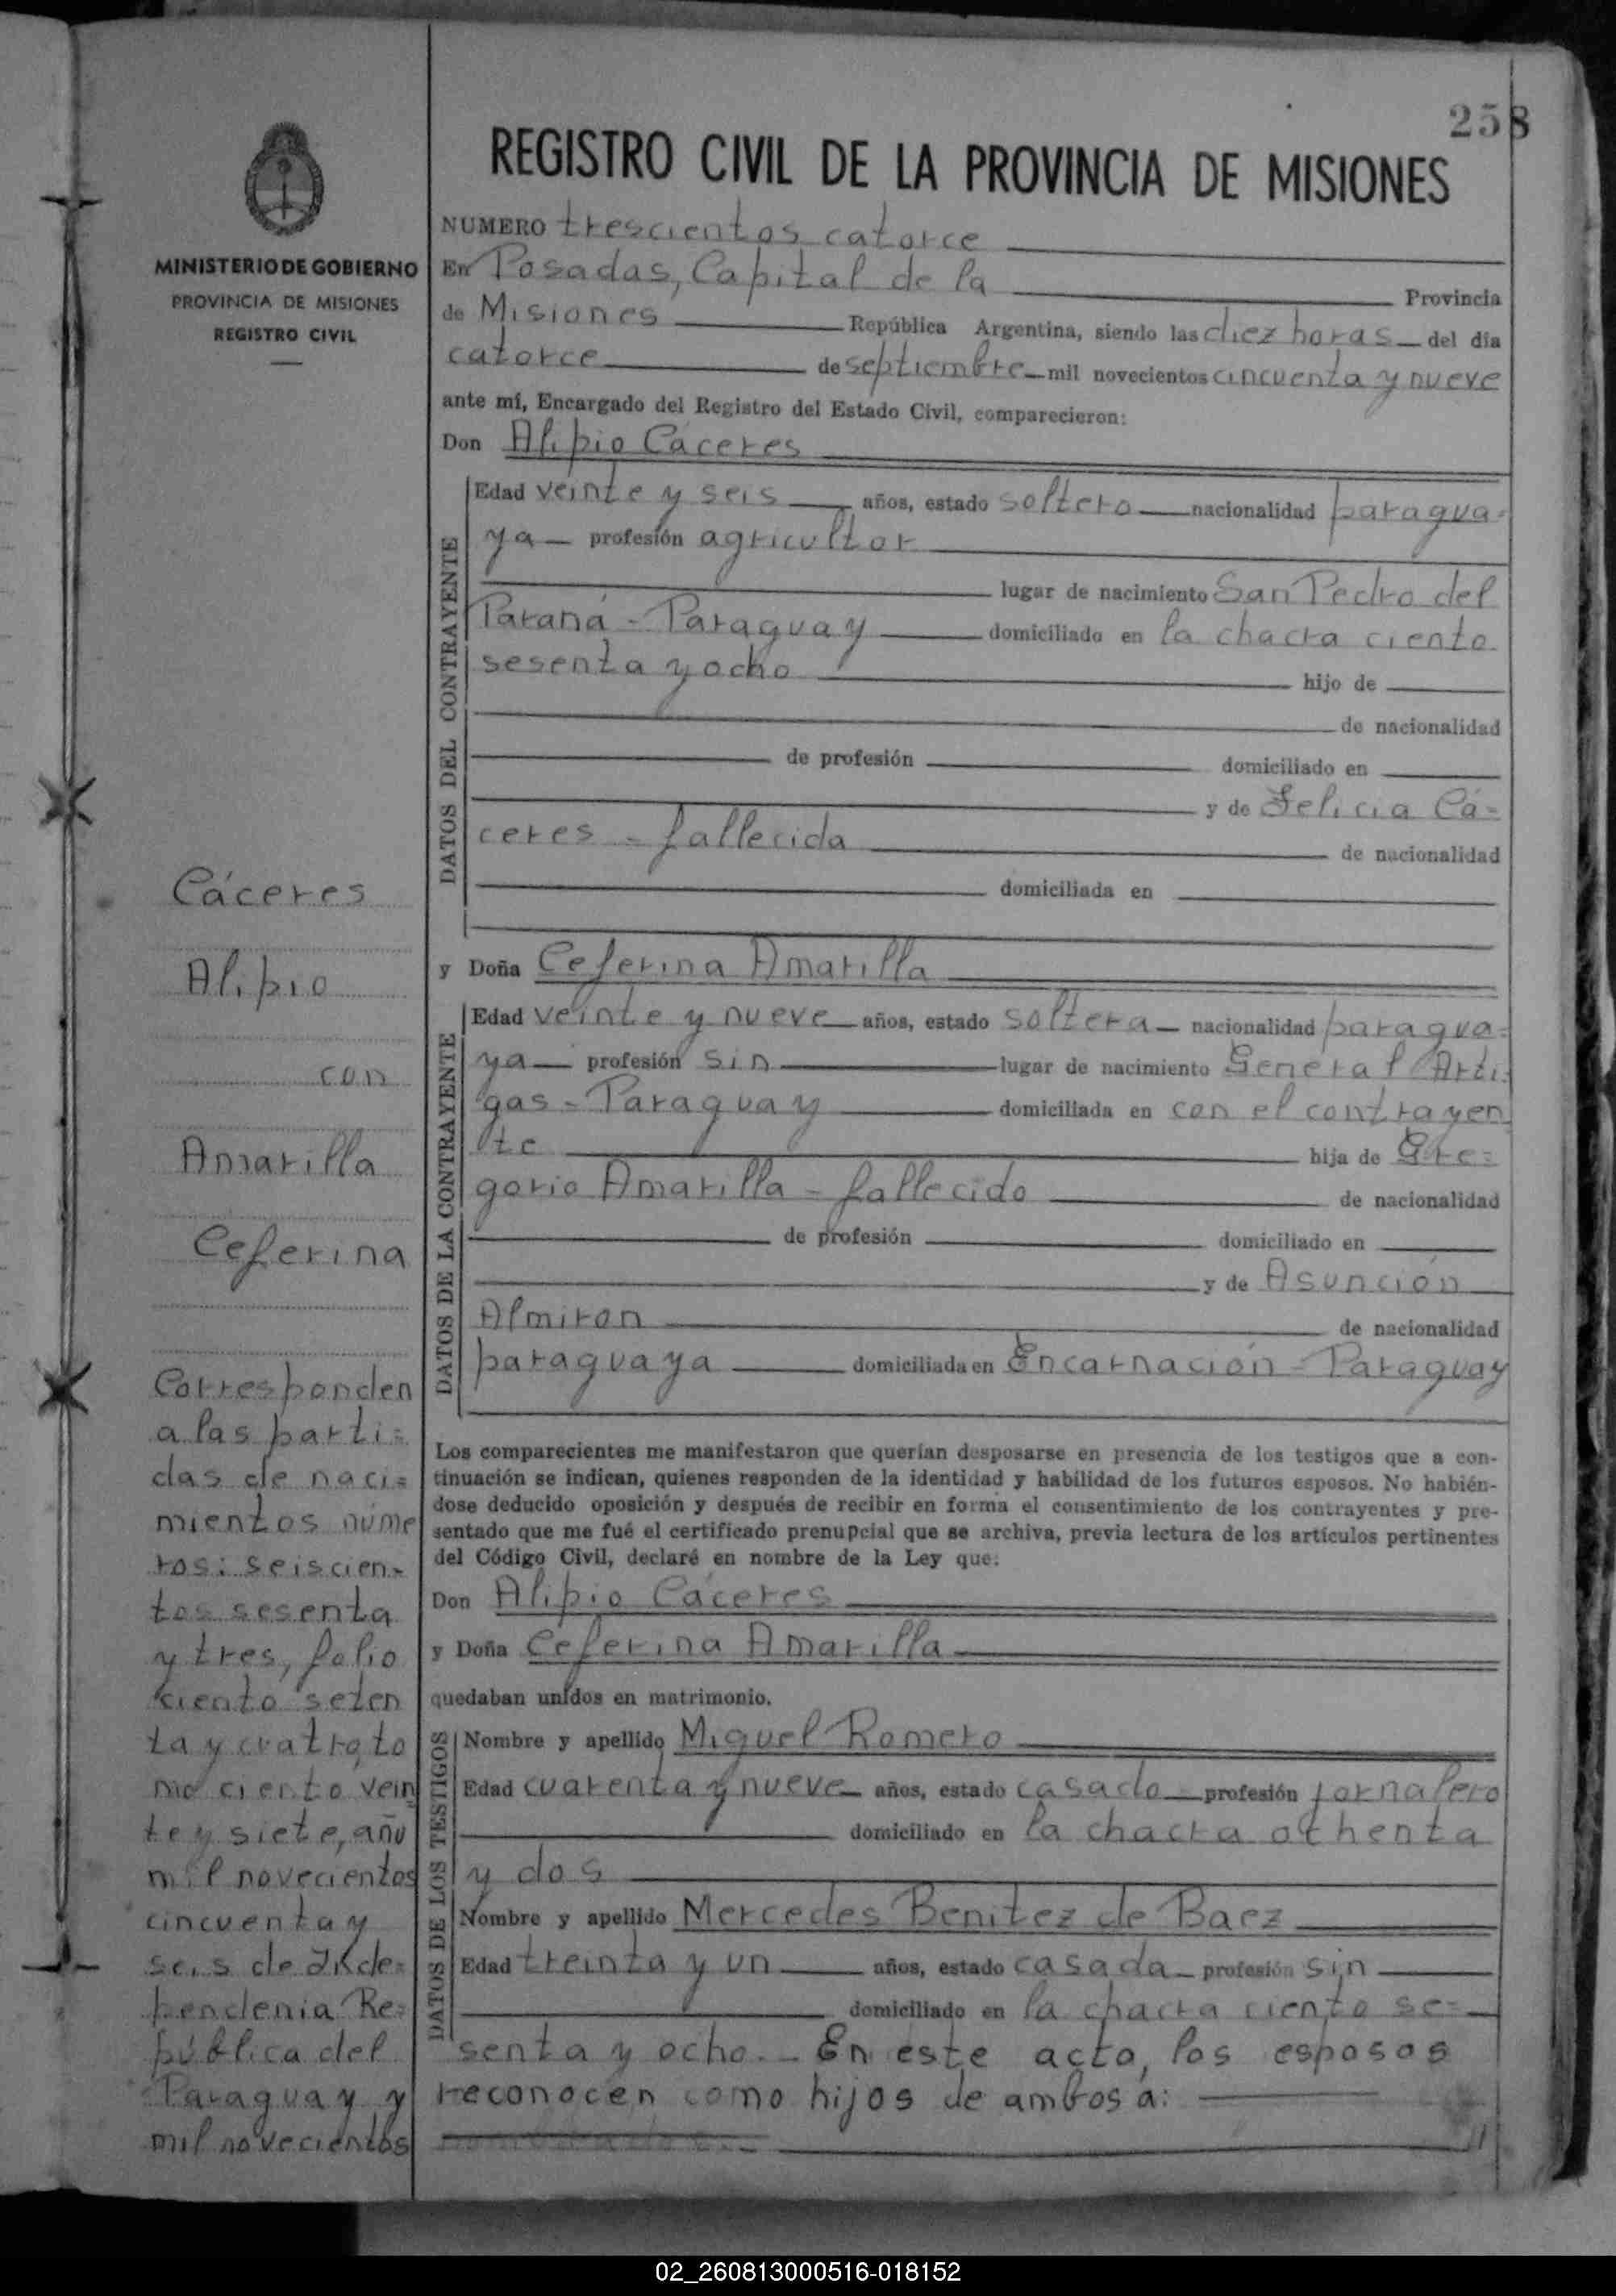 258
REGISTRO CIVIL DE LA PROVINCIA DE MISIONES
MINISTERIO DE GOBIERNO
PROVINCIA DE MISIONES
REGISTRO CIVIL
NUMERO trescientos catorce
En Posadas, Capital de la Provincia
de Misiones República Argentina, siendo las diez horas del día
catorce de septiembre mil novecientos cincuenta y nueve
ante mí, Encargado del Registro del Estado Civil, comparecieron:
Don Alipio Cáceres
DATOS DEL CONTRAYENTE
Edad veinte y seis años, estado soltero nacionalidad paragua=
ya profesión agricultor
lugar de nacimiento San Pedro del
Paraná - Paraguay domiciliado en la chacra ciento
sesenta y ocho hijo de
de nacionalidad
de profesión domiciliado en
y de Felicia Cá=
ceres - fallecida de nacionalidad
domiciliada en
y Doña Ceferina Amarilla
DATOS DE LA CONTRAYENTE
Edad veinte y nueve años, estado soltera nacionalidad paragua=
ya profesión sin lugar de nacimiento General Arti=
gas - Paraguay domiciliada en con el contrayen
te hija de Gre=
gorio Amarilla - fallecido de nacionalidad
de profesión domiciliado en
y de Asunción
Almiron de nacionalidad
paraguaya domiciliada en Encarnación - Paraguay
Los comparecientes me manifestaron que querían desposarse en presencia de los testigos que a con-
tinuación se indican, quienes responden de la identidad y habilidad de los futuros esposos. No habién-
dose deducido oposición y después de recibir en forma el consentimiento de los contrayentes y pre-
sentado que me fué el certificado prenupcial que se archiva, previa lectura de los artículos pertinentes
del Código Civil, declaré en nombre de la Ley que:
Don Alipio Cáceres
y Doña Ceferina Amarilla
quedaban unidos en matrimonio.
DATOS DE LOS TESTIGOS
Nombre y apellido Miguel Romero
Edad cuarenta y nueve años, estado casado profesión jornalero
domiciliado en la chacra ochenta
y dos
Nombre y apellido Mercedes Benitez de Baez
Edad treinta y un años, estado casada profesión sin
domiciliado en la chacra ciento se=
senta y ocho.- En este acto, los esposos
reconocen como hijos de ambos a:
Cáceres
Alipio
con
Amarilla
Ceferina
Corresponden
a las parti=
das de naci=
mientos núme
ros: seiscien=
tos sesenta
y tres, folio
ciento seten
ta y cuatro, to
mo ciento vein
te y siete, año
mil novecientos
cincuenta y
seis de Inde=
pendenia Re=
pública del
Paraguay y
mil novecientos
02_260813000516-018152